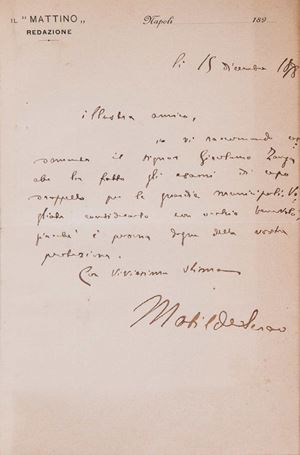 IL "MATTINO"
REDAZIONE
Napoli 189
li 15 dicembre 1898
illustre amico,
io vi raccomando
il signor Girolamo
che ha fatto gli esami di capo
drappello per le guardie municipali. Vo-
gliate considerarlo con occhio benevolo,
perché è persona degna della vostra
protezione.
Con vivissima stima
Matilde Serao